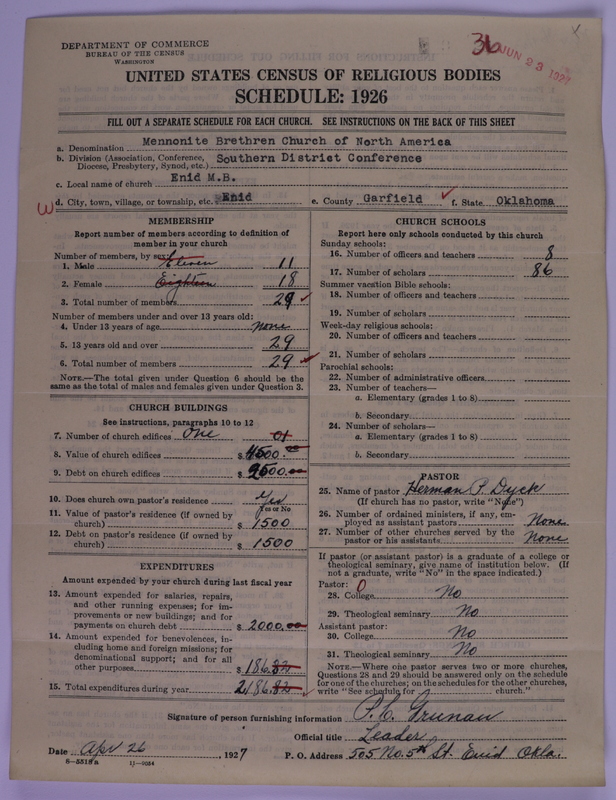 DEPARTMENT OF COMMERCE
BUREAU OF THE CENSUS
WASHINGTON
36
JUN 23 1927
UNITED STATES CENSUS OF RELIGIOUS BODIES
SCHEDULE: 1926
FILL OUT A SEPARATE SCHEDULE FOR EACH CHURCH. SEE INSTRUCTIONS ON THE BACK OF THIS SHEET
a. Denomination Mennonite Brethren Church of North America
b. Division (Association, Conference, Diocese, Presbytery, Synod, etc.) Southern District Conference
c. Local name of church Enid M.B.
W d. City, town, village, or township, etc. Enid e. County Garfield f. State Oklahoma
MEMBERSHIP
Report number of members according to definition of
member in your church
Number of members, by sex:
1. Male Eleven 11
2. Female Eighteen 18
3. Total number of members 29
Number of members under and over 13 years old:
4. Under 13 years of age none
5. 13 years old and over 29
6. Total number of members 29
NOTE.—The total given under Question 6 should be
same as the total of males and females given under Question 3.
CHURCH BUILDINGS
See instructions, paragraphs 10 to 12
7. Number of church edifices One 01
8. Value of church edifices $ 4500.00
9. Debt on church edifices $ 2500.00
10. Does church own pastor's residence Yes
Yes or No
11. Value of pastor's residence (if owned by
church) $ 1500
12. Debt on pastor's residence (if owned by
church) $ 1500
EXPENDITURES
Amount expended by your church during last fiscal year
13. Amount expended for salaries, repairs,
and other running expenses; for im-
provements or new buildings; and for
payments on church debt $ 2000.00
14. Amount expended for benevolences, in-
cluding home and foreign missions; for
denominational support; and for all
other purposes $ 186.82
15. Total expenditures during year 2186.82
CHURCH SCHOOLS
Report here only schools conducted by this church
Sunday schools:
16. Number of officers and teachers 8
17. Number of scholars 86
Summer vacation Bible schools:
18. Number of officers and teachers
19. Number of scholars
Week-day religious schools:
20. Number of officers and teachers
21. Number of scholars
Parochial schools:
22. Number of administrative officers
23. Number of teachers—
a. Elementary (grades 1 to 8)
b. Secondary
24. Number of scholars—
a. Elementary (grades 1 to 8)
b. Secondary
PASTOR
25. Name of pastor Herman P. Dyck
(If church has no pastor, write "None")
26. Number of ordained ministers, if any, em-
ployed as assistant pastors None
27. Number of other churches served by the
pastor or his assistants None
If pastor (or assistant pastor) is a graduate of a college or
theological seminary, give name of institution below. (If
not a graduate, write "No" in the space indicated.)
Pastor: 0
28. College No
29. Theological seminary No
Assistant pastor:
30. College No
31. Theological seminary No
NOTE.—Where one pastor serves two or more churches,
Questions 28 and 29 should be answered only on the schedule
for one of the churches; on the schedules for the other churches,
write "See schedule for church."
Signature of person furnishing information P. C. Grunau
Official title Leader
Date Apr 26, 1927 P. O. Address 505 No. 5th St. Enid Okla.
6—5518a 11—9054